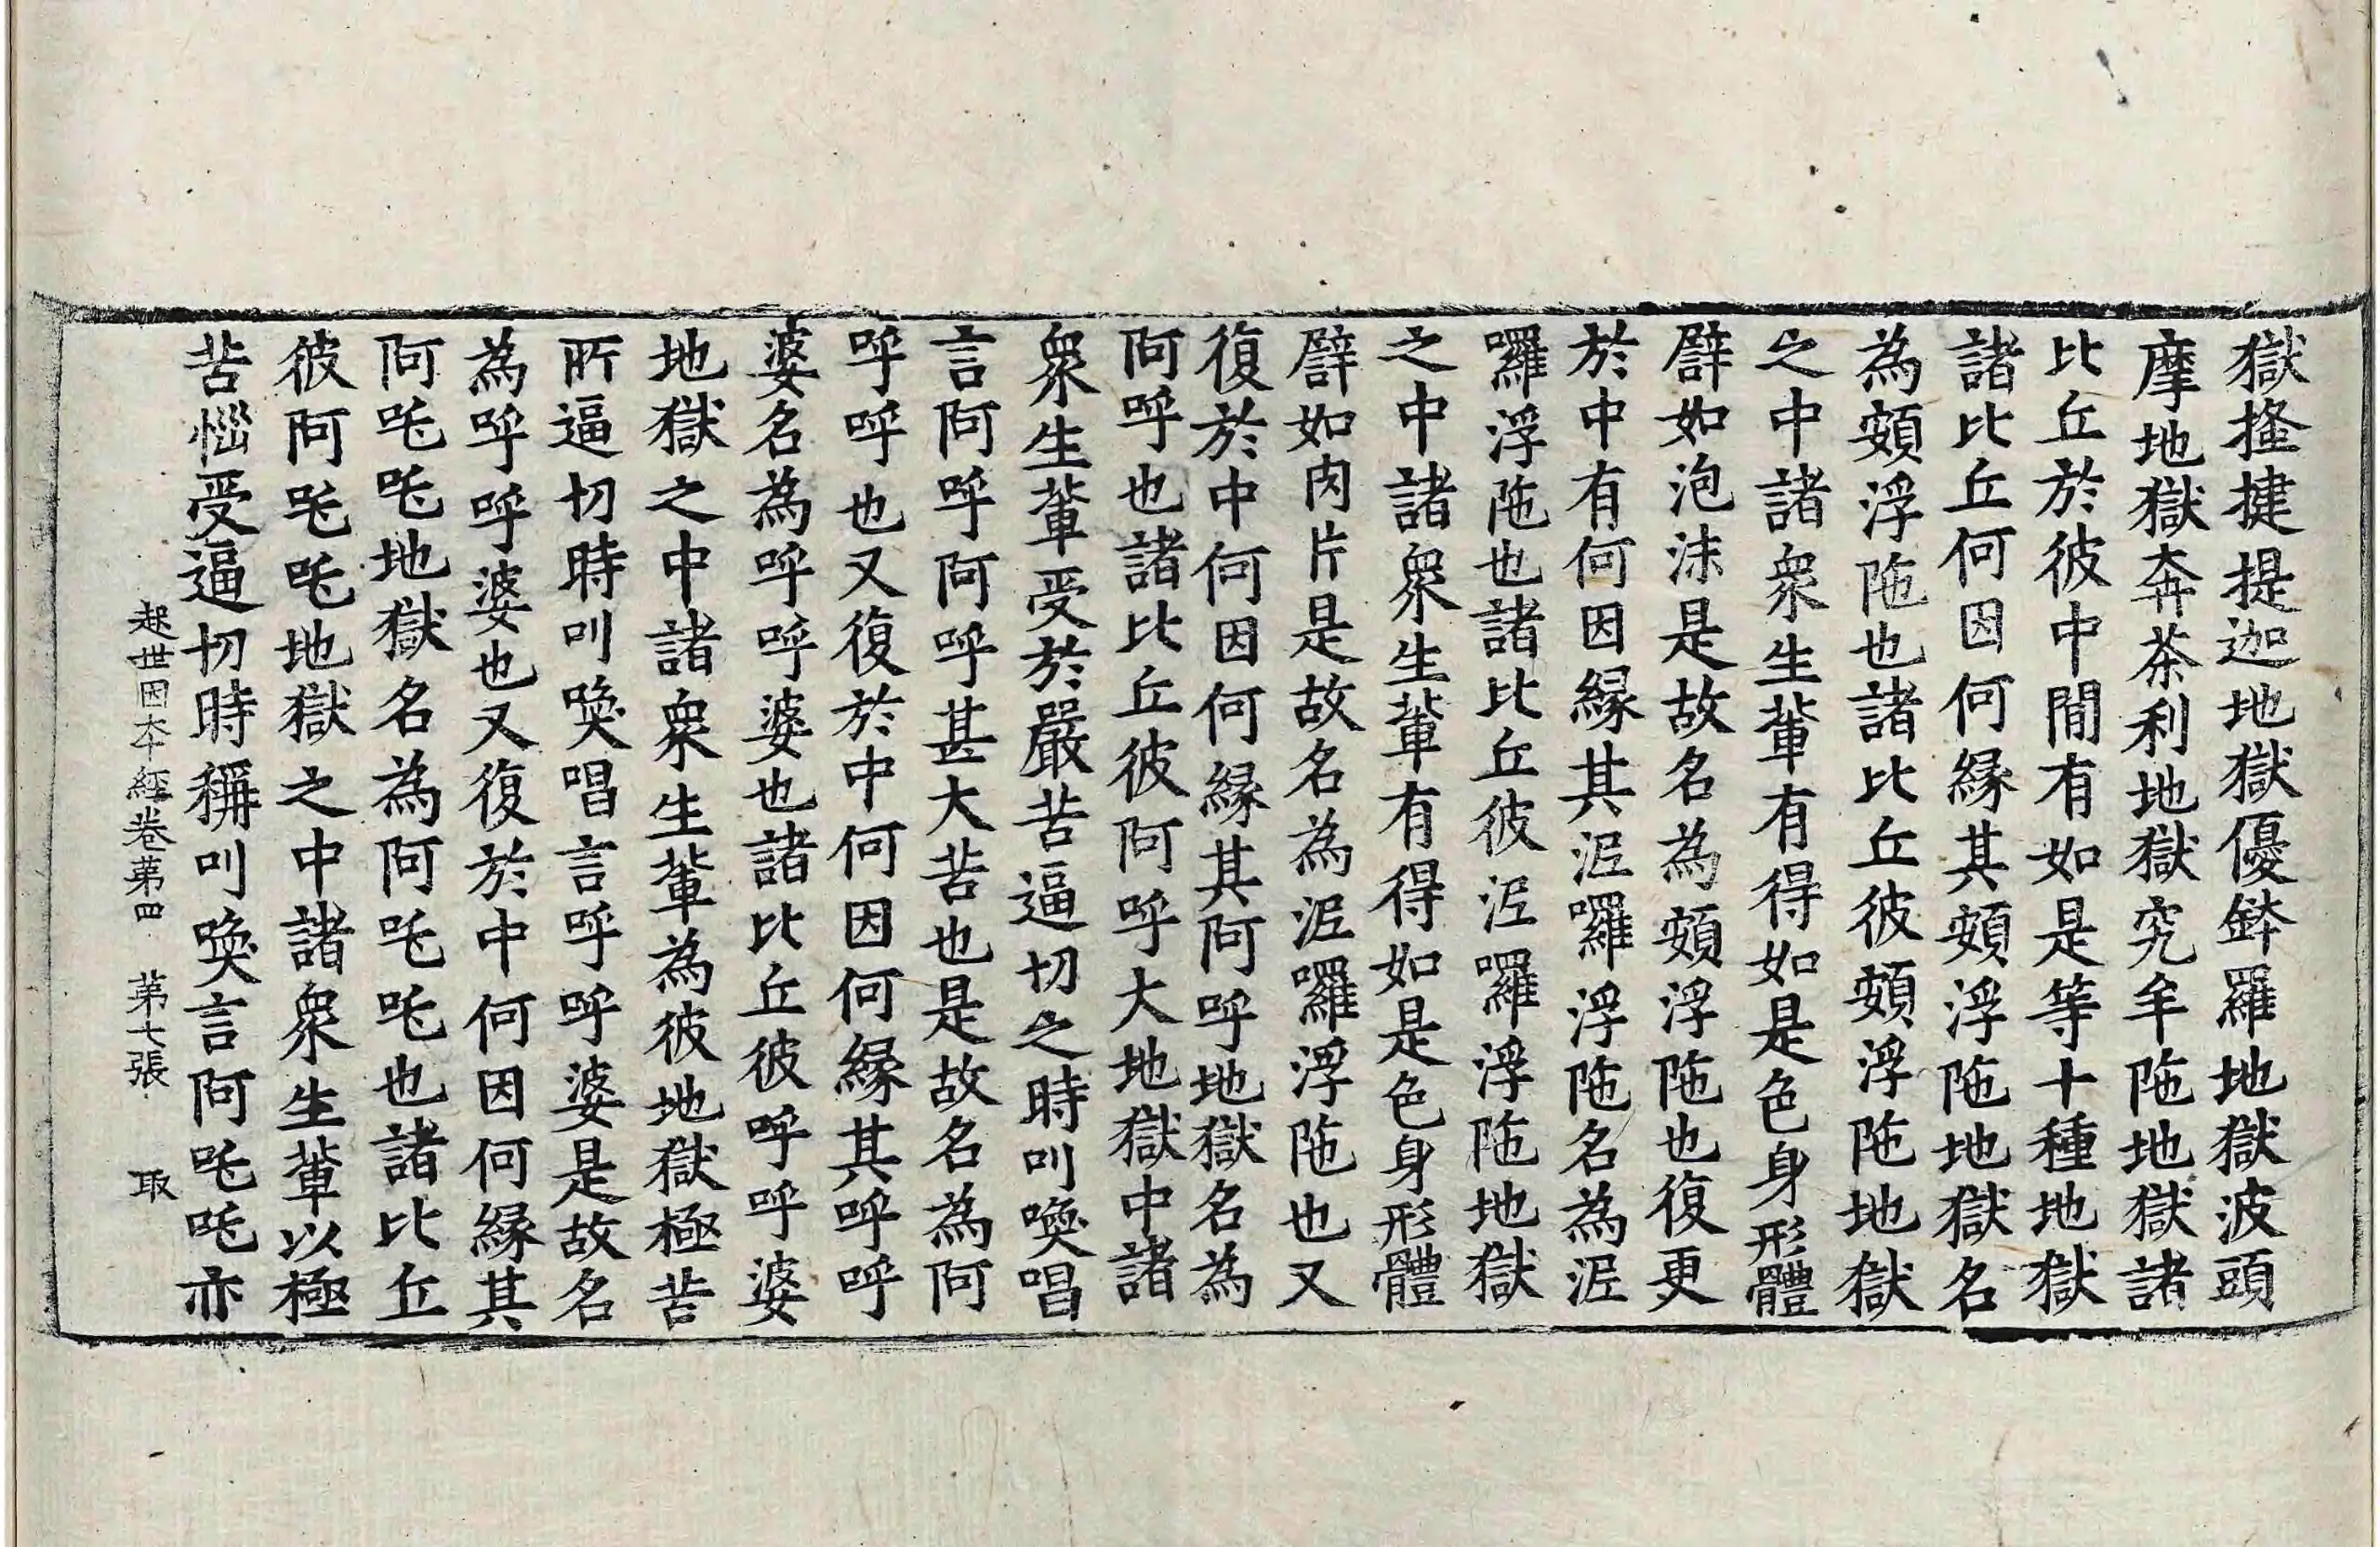 獄搔揵提迦地獄優鉢羅地獄波頭
摩地獄奔茶利地獄究牟陁地獄諸
比丘於彼中閒有如是等十種地獄
諸比丘何因何縁其頞浮陁地獄名
為頞浮陁也諸比丘彼頞浮陁地獄
之中諸衆生軰有得如是色身形體
譬如泡沫是故名為頞浮陁也復更
於中有何因縁其泥囉浮陁名為泥
囉浮陁也諸比丘彼泥囉浮陁地獄
之中諸衆生軰有得如是色身形體
譬如肉片是故名為泥囉浮陁也又
復於中何因何縁其阿呼地獄名為
阿呼也諸比丘彼阿呼大地獄中諸
衆生軰受於嚴苦逼切之時叫喚唱
言阿呼阿呼甚大苦也是故名為阿
呼呼也又復於中何因何縁其呼呼
婆名為呼呼婆也諸比丘彼呼呼婆
地獄之中諸衆生軰為彼地獄極苦
所逼切時叫喚唱言呼呼婆是故名
為呼呼婆也又復於中何因何縁其
阿吒吒地獄名為阿吒吒也諸比丘
彼阿吒吒地獄之中諸衆生軰以極
苦惱受逼切時稱叫喚言阿吒吒亦
起世因本經卷苐四 苐七張 取